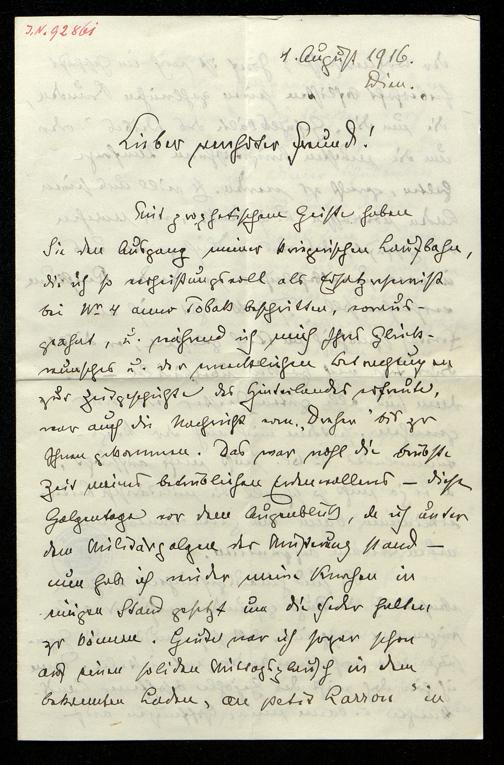 J.N. 92861
1. August 1916.
Wien.
Lieber verehrter Freund!
Mit prophetischem Geiste haben
Sie den Ausgang meiner kriegerischen Laufbahn,
die ich so verheißungsvoll als Ersatzreservist
bei Nr. 4 anno Tobak beschritten, voraus
geahnt, u. während ich mich Ihres Glück-
wunsches u. der Betrachtungen
zur Zeitgeschichte des Hinterlandes erfreute,
war auch die Nachricht vom „Dreher“ bis zu
Ihnen gekommen. Das war wohl die trübste
Zeit meines betrüblichen Erdenwallens – diese
Galgentage vor dem Augenblick, da ich unter
dem Militärgalgen der Musterung stand –
nun hab ich wieder meine Knochen in
einigen Stand gesetzt um die Feder halten
zu können. Heute war ich sogar schon
auf einen soliden Mittagsplausch in dem
bekannten Laden, „au petit Larron“ in